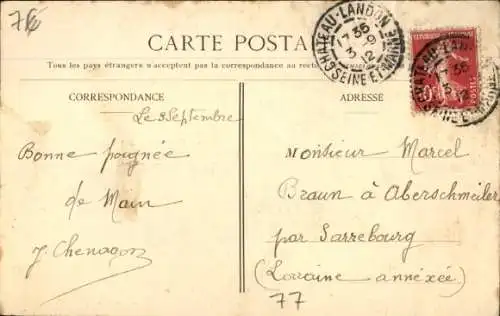 CHATEAU-LANDON
17 35
3 -9
12
SEINE ET MARNE
CARTE POSTALE
Tous les pays étrangers n'acceptent pas la correspondance au recto
CORRESPONDANCE
ADRESSÉ
Le 3 Septembre
Bonne poignée
de Main
J. Chenagon
Monsieur Marcel
Braun à Aberschmeiler
par Sarrebourg
(Lorraine annéxée)
77